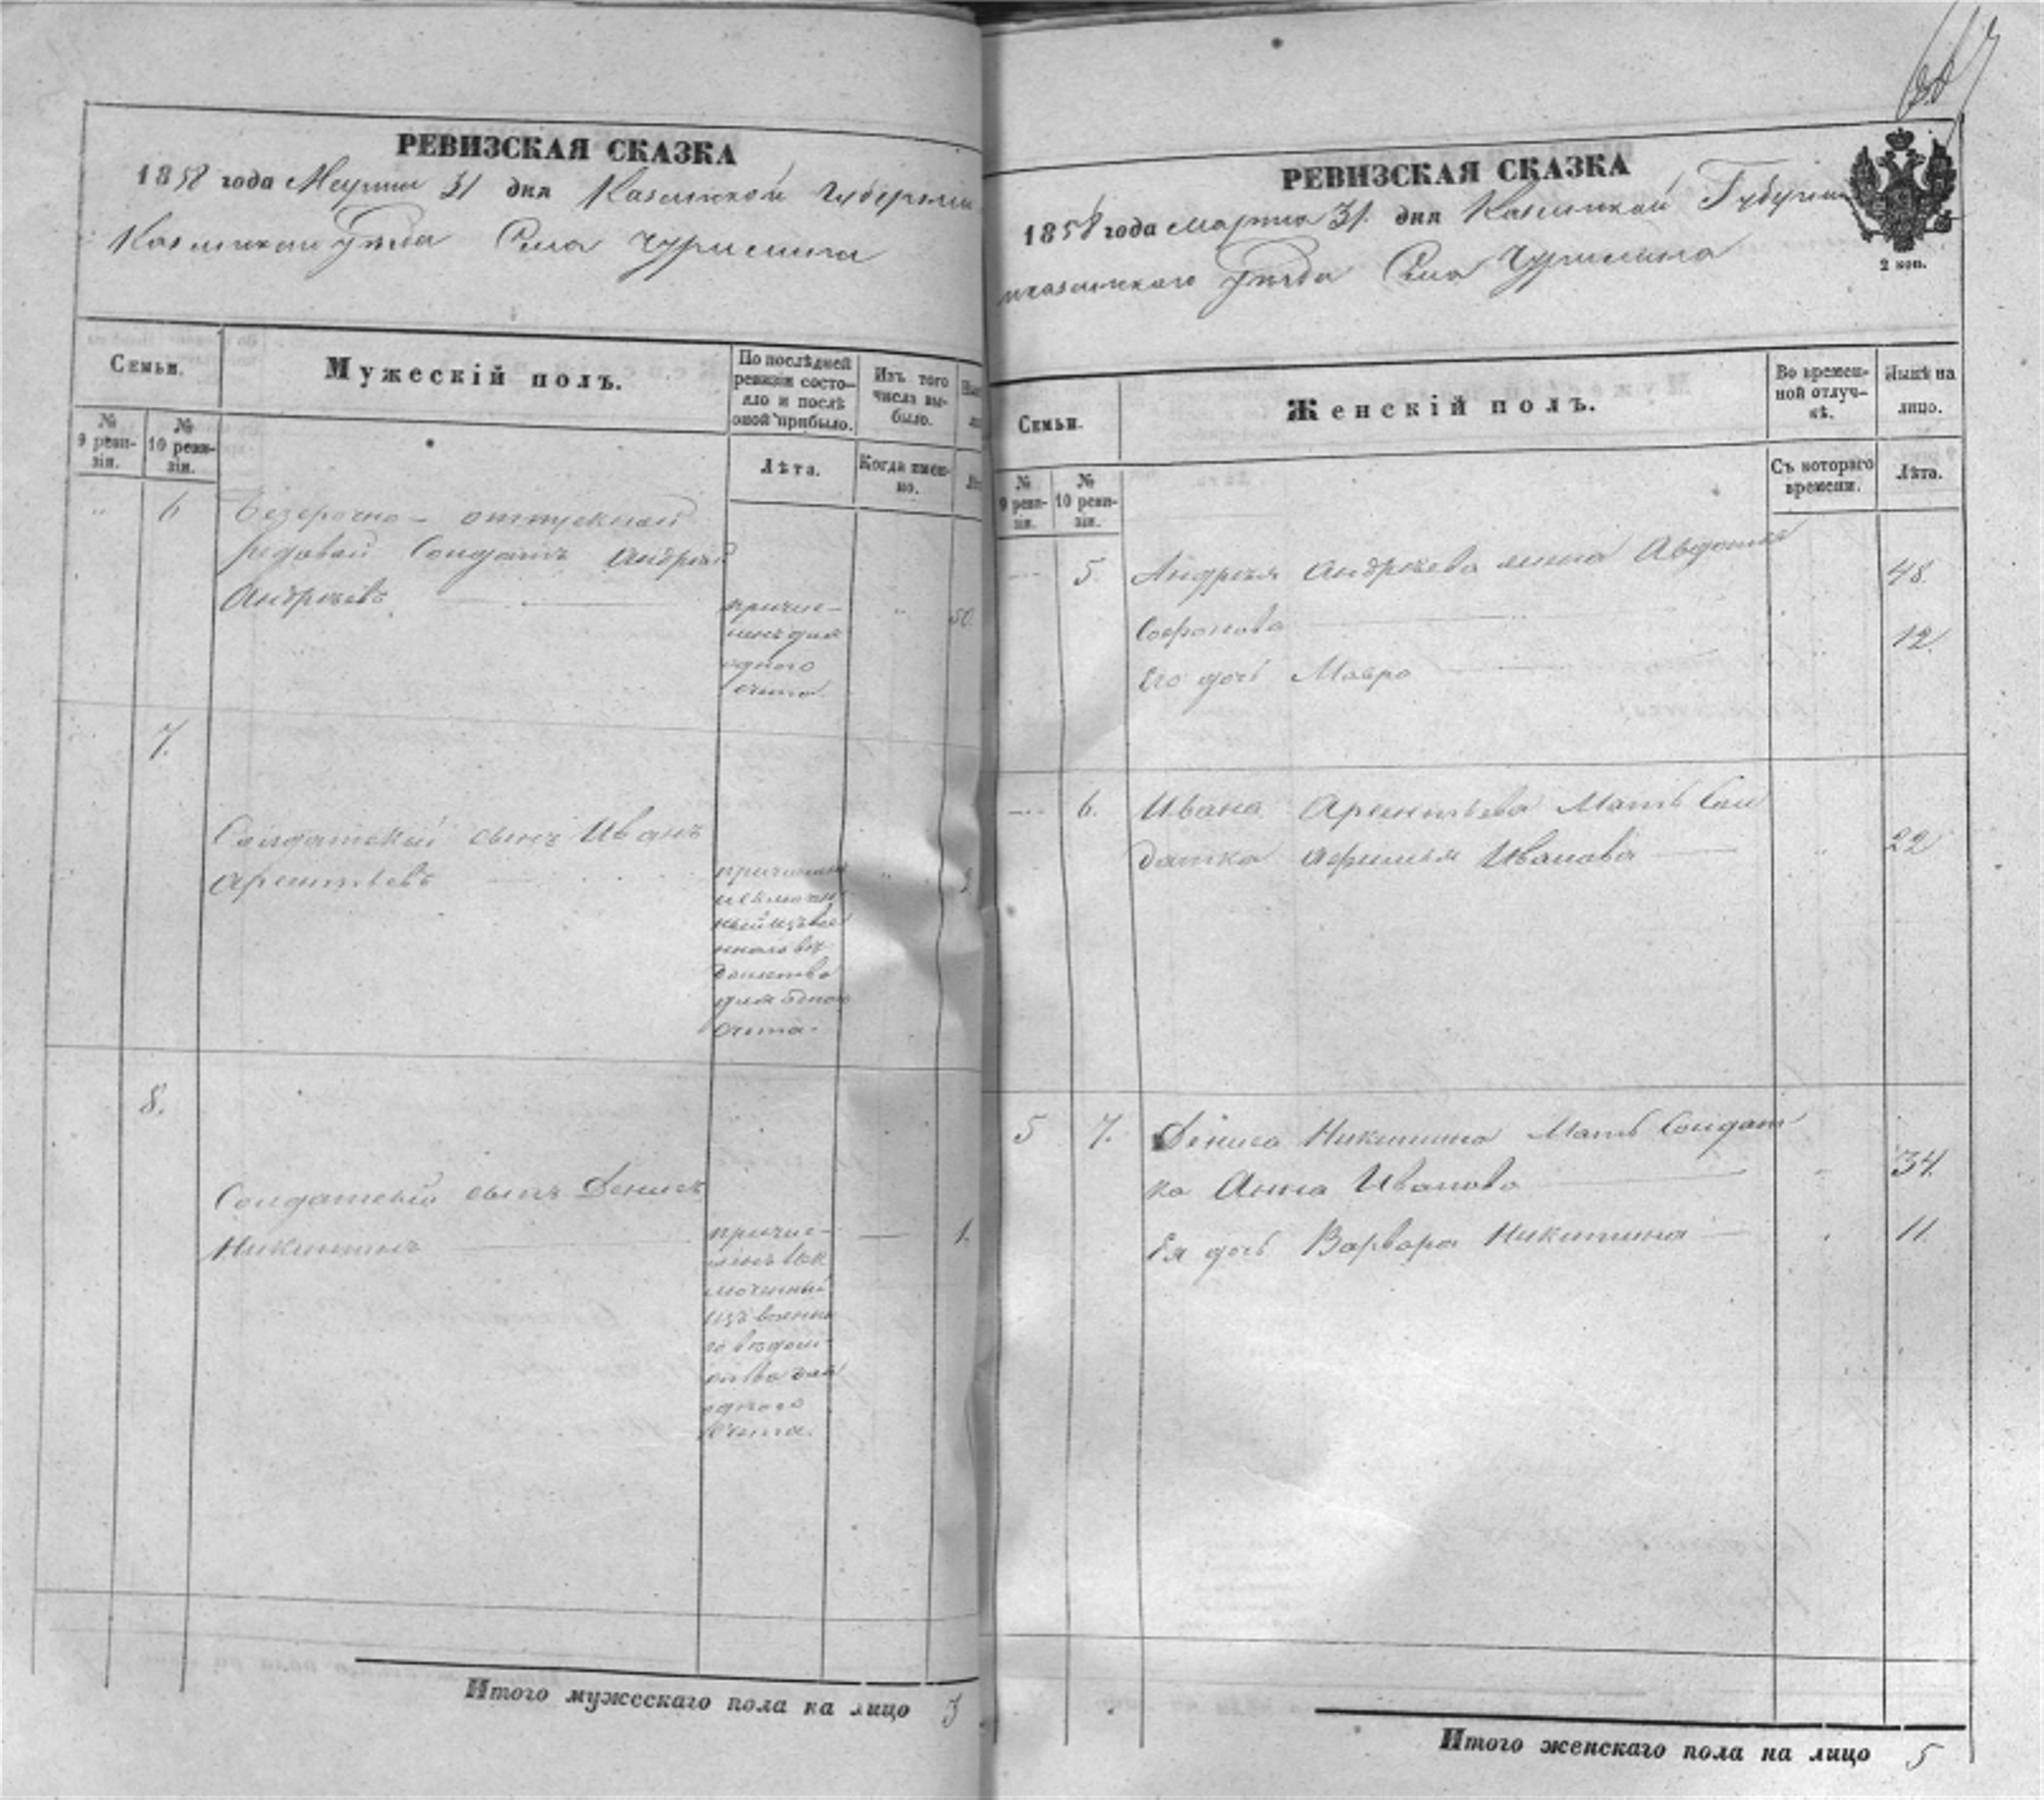 РЕВИЗСКАЯ СКАЗКА
1858 года Марта 31 дня Казанской губернии
Казанскаго уѣзда Села Чурилина
Семьи.
Мужескій полъ.
По послѣдней ревизіи состояло и послѣ оной прибыло.
Изъ того числа выбыло.
№ 9 ревизіи.
№ 10 ревизіи.
Лѣта.
Когда именно.
6
Безсрочно-отпускной
рядовой Солдатъ Андрей
Андреевъ
причис-
ленъ для
одного
счета.
50.
7.
Солдатскій сынъ Иванъ
причисленъ
для одного
счета.
8.
Солдатскій сынъ Денисъ
Никитинъ
причис-
ленъ
изъ военна
го вѣдом-
ства для
одного
счета.
1.
Итого мужескаго пола на лицо 3
РЕВИЗСКАЯ СКАЗКА
1858 года марта 31. дня Казанской Губерніи
Казанскаго уѣзда Села Чурилина
2 коп.
Семьи.
Женскій полъ.
Во временной отлучкѣ.
Нынѣ на лицо.
№ 9 ревизіи.
№ 10 ревизіи.
Съ котораго времени.
Лѣта.
5 Андрея Андреева жена Авдотья 48.
Софронова
Его дочь Мавра 12.
6. Ивана Мать Сол
датка Иванова 22
5 7. Дениса Никитина Мать Солдат
ка Анна Иванова 34.
Ея дочь Варвара Никитина 11.
Итого женскаго пола на лицо 5